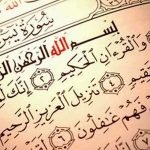 سُورَةُ يس
بِسْمِ اللَّهِ الرَّحْمَٰنِ
وَالْقُرْءَانِ الْحَكِيمِ ٢ إِنَّكَ
٤ تَنزِيلَ الْعَزِيزِ الرَّحِيمِ
فَهُمْ غَٰفِلُونَ